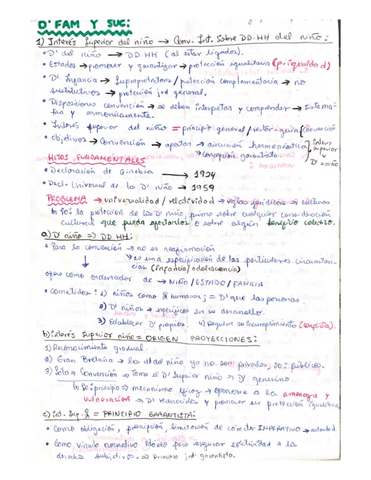 D' FAM Y SUC:
1) Interés Superior del niño → Conv. Int. Sobre DD.HH del niño:
• D' del niño → DD.HH (al estar ligados).
• Estados → promover y garantizar → protección igualitaria (p. igualdad)
• D' Infancia → / protección complementaria → no
sustitutivos → protección jrd general.
• Disposiciones convención → se deben interpretar y comprender → sistema-
tica y armónicamente.
• Interés Superior del niño = principio general / rector-guía (convención
• objetivos → Convención → apartar → hermenéutica
→ concepción garantista
interés superior
D' niño
HITOS FUNDAMENTALES
• Declaración de Ginebra → 1924
• Decl. Universal de los D' niño → 1959
PROBLEMA → universalidad / relatividad → reglas jurídicas vs culturas
↳ Sol: la protección de los D' niño, prima sobre cualquier consideración
cultural que pueda afectarlos o sobre algún beneficio colectivo.
a) D' niño => DD.HH:
• Para la convención → no es reafirmación
→ es una especificación de las particulares circunstan-
cias (infancia/adolescencia)
opera como ordenador de → NIÑO / ESTADO / FAMILIA
• Cometidos: 1) niños como humanos; = D' que las personas.
2) D' niños → específicos en su desarrollo.
3) Establecer D' propios. 4) Regular su incumplimiento
b) interés Superior niño = ORIGEN PROYECCIONES:
1) Reconocimiento gradual
2) Gran Bretaña → los D' del niño ya no son privados, sino público.
3) Solo a Convención → Toma el D' Superior niño → D' genuino.
↳ Sí principio → mecanismo eficaz → oponerse a la amenaza y
vulneración → D' reconocidos y promover su protección igualitaria
c) int. Sup. = PRINCIPIO GARANTISTA:
• Como obligación, prescripción, limitación de carácter IMPERATIVO → autoridad.
• Como vínculo normativo idóneo para asegurar efectividad a los
derechos subjetivos. → principio jrd. garantista.